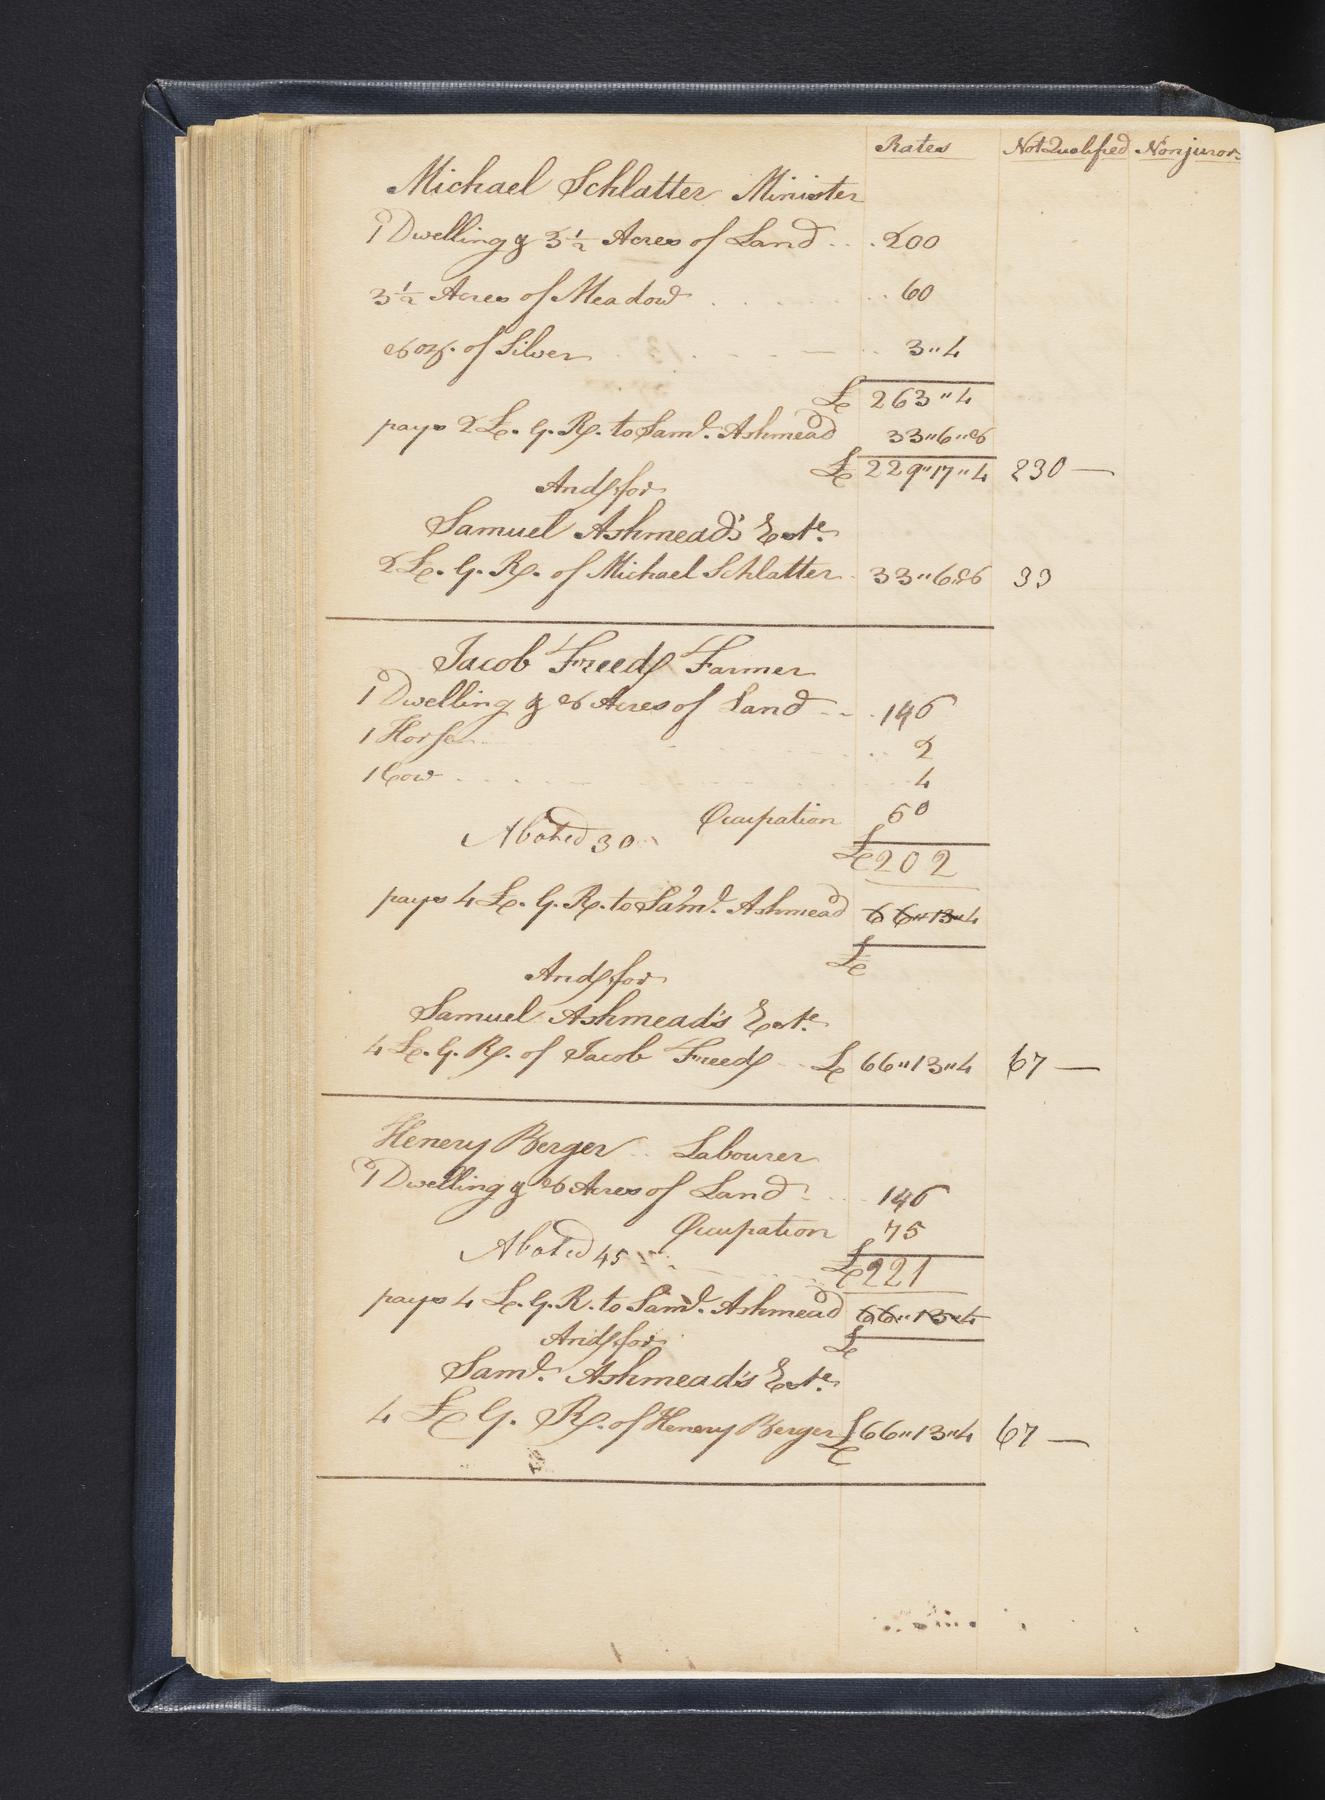 Rates Not Qualified Nonjurors
Michael Schlatter Minister
1 Dwelling & 3½ Acres of Land . . . 200
3½ Acres of Meadow . . . . 60
8 ozs. of Silver . . . 3"4
£ 263"4
pays 2 £. G. R. to Saml. Ashmead 33"6"8
£ 229"17"4 230 —
And for
Samuel Ashmead's Este.
2 £. G. R. of Michael Schlatter 33"6"8 33
Jacob Freed Farmer
1 Dwelling & 8 Acres of Land . . . 146
1 Horse . . . 2
1 Cow . . . 4
Ocupation 50
Abated 30
£ 202
pays 4 £. G. R. to Saml. Ashmead 66"13"4
£
And for
Samuel Ashmead's Este.
4 £. G. R. of Jacob Freed £ 66"13"4 67 —
Henery Berger Labourer
1 Dwelling & 8 Acres of Land . . . 146
Ocupation 75
Abated 45
£ 221
pays 4 £. G. R. to Saml. Ashmead 66"13"4
And for £
Saml. Ashmead's Este.
4 £ G. R. of Henery Berger £ 66"13"4 67 —